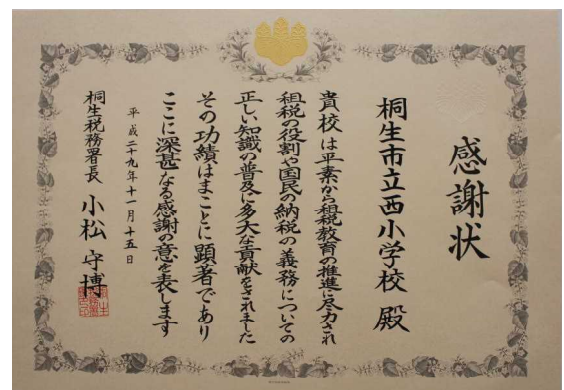 感謝状
桐生市立西小学校 殿
貴校は平素から租税教育の推進に尽力され
租税の役割や国民の納税の義務についての
正しい知識の普及に多大な貢献をされました
その功績はまことに顕著であり
ここに深甚なる感謝の意を表します
平成二十九年十一月十五日
桐生税務署長 小松守博